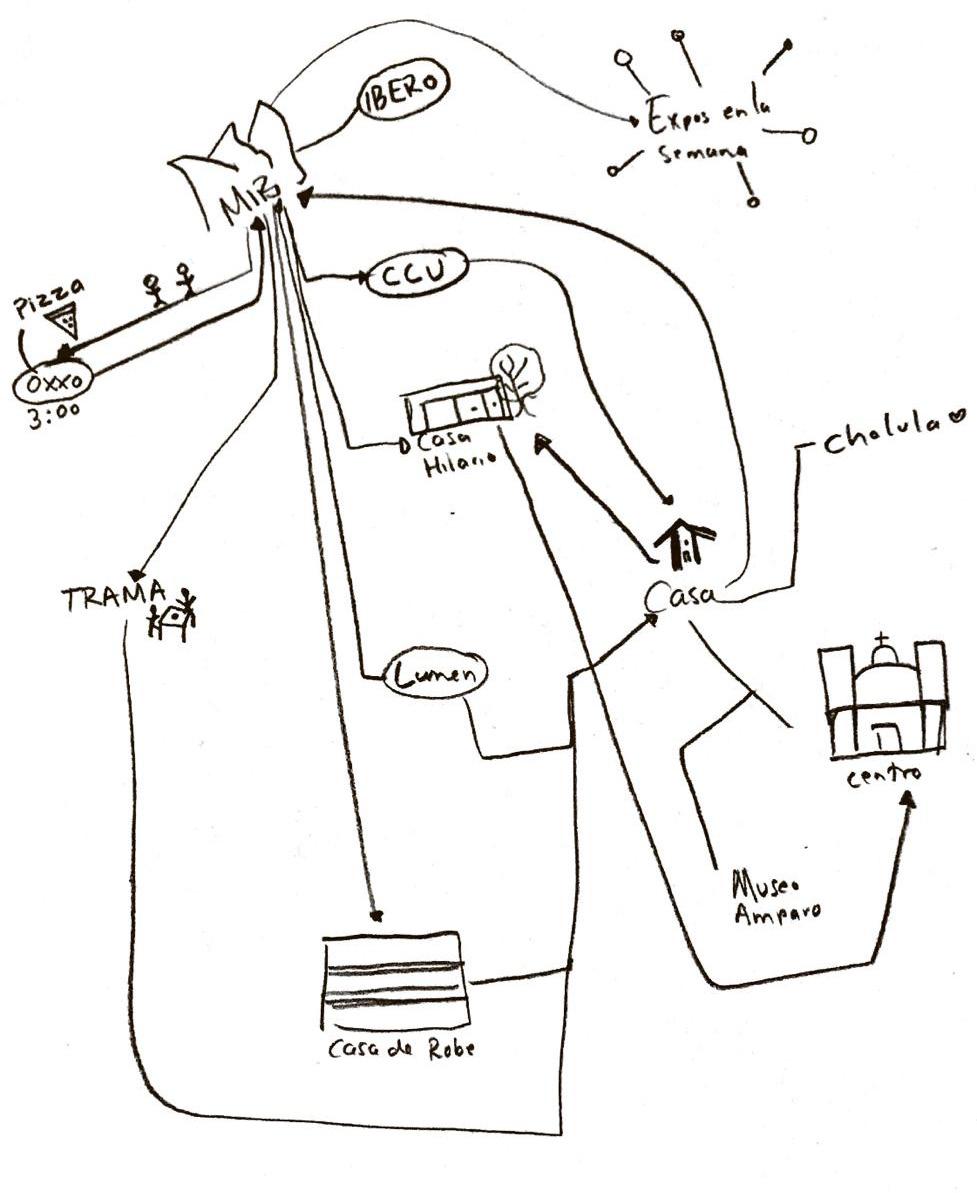 IBERO
Expos en la
semana
MIB
CCU
Pizza
OXXO
3:00
Casa
Hilario
Cholula
TRAMA
Casa
Lumen
centro
Museo
Amparo
Casa de Robe